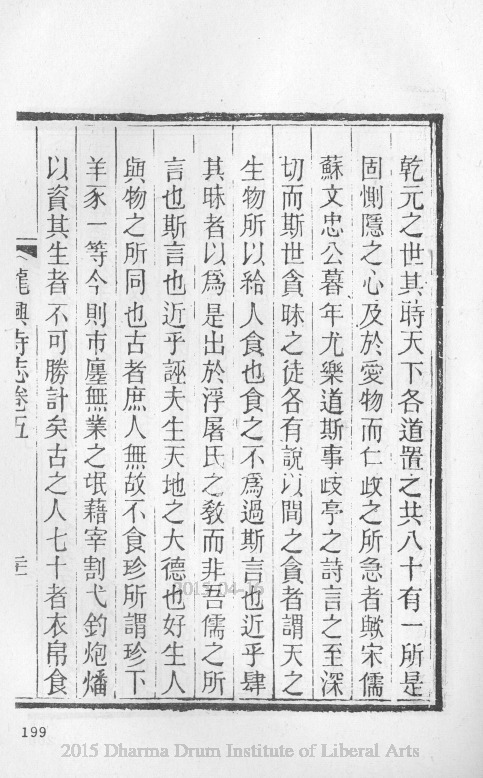 乾元之世其時天下各道置之共八十有一所是
固惻隱之心及於愛物而仁政之所急者歟宋儒
蘇文忠公暮年尤樂道斯事歧亭之詩言之至深
切而斯世貪昧之徒各有說以間之貪者謂天之
生物所以給人食也食之不爲過斯言也近乎肆
其昧者以爲是出於浮屠氏之敎而非吾儒之所
言也斯言也近乎誣夫生天地之大德也好生人
與物之所同也古者庶人無故不食珍所謂珍下
羊豕一等今則市廛無業之氓藉宰割弋釣炮燔
以資其生者不可勝計矣古之人七十者衣帛食
龍興寺志卷五
199
2015 Dharma Drum Institute of Liberal Arts